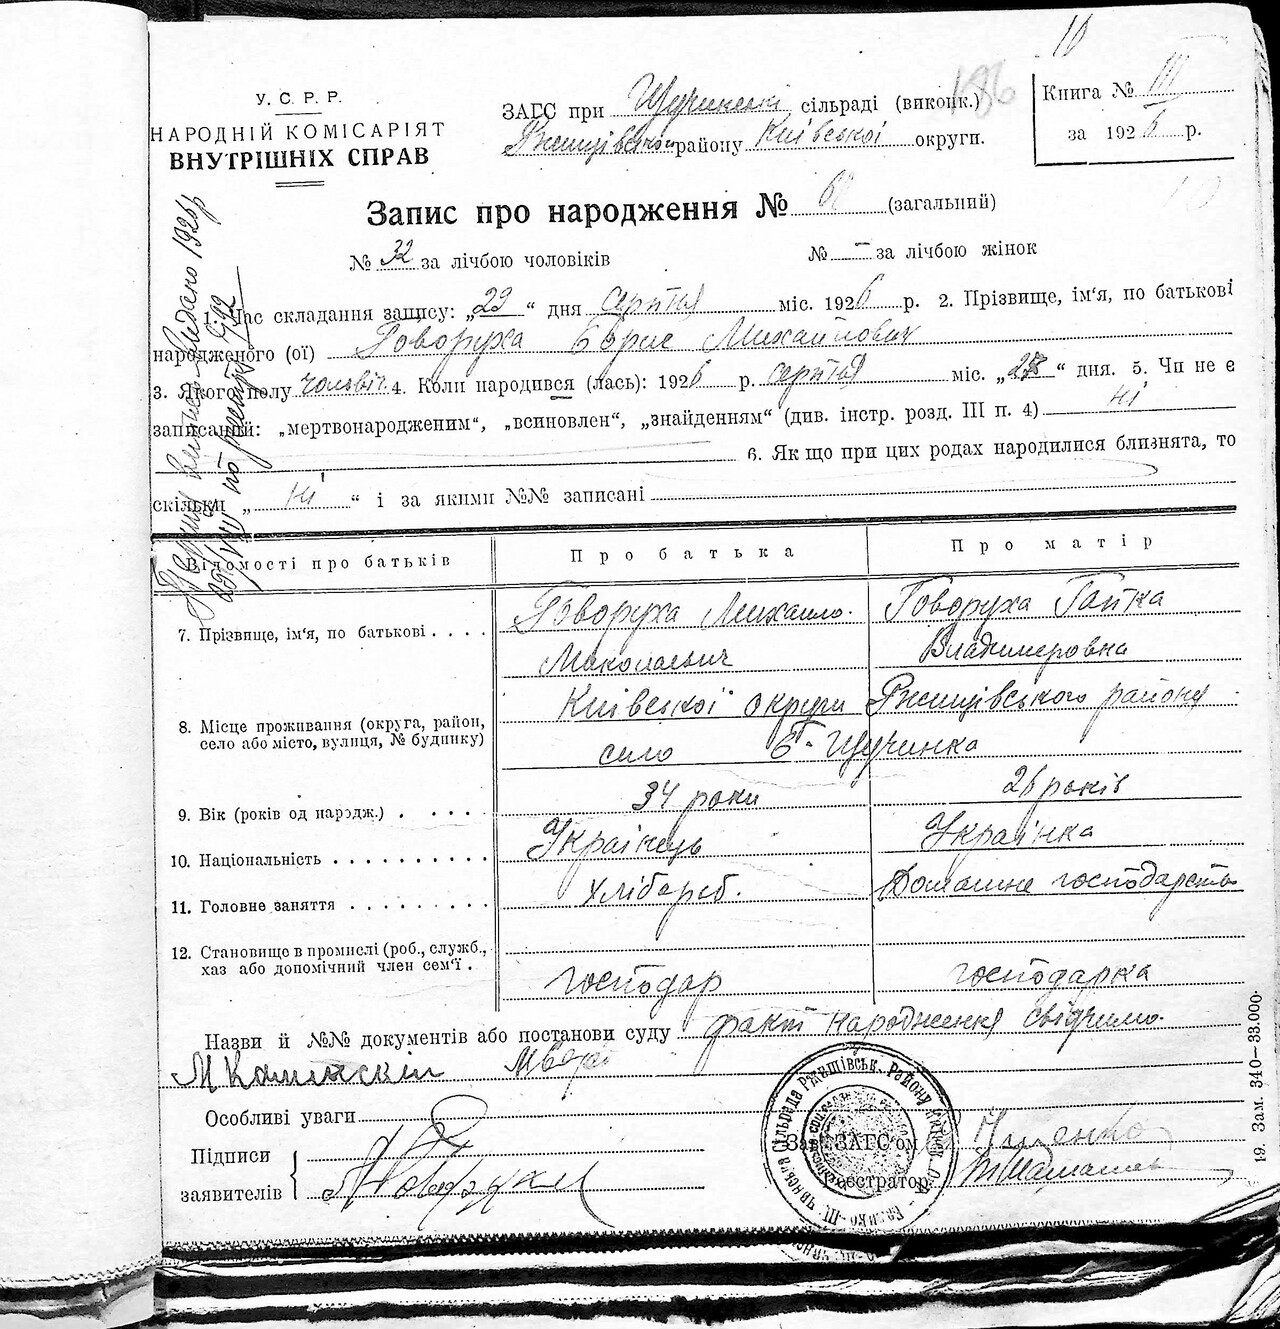 10
186
У. С. Р. Р.
НАРОДНІЙ КОМІСАРІЯТ
ВНУТРІШНІХ СПРАВ
ЗАГС при Щучинські сільраді (виконк.)
Ржищівськ. району Київської округи.
Книга № III
за 1926 р.
Запис про народження № 60 (загальний)
10
№ 32 за лічбою чоловіків № – за лічбою жінок
1. Час складання запису: „29“ дня серпня міс. 1926 р. 2. Прізвище, ім'я, по батькові
народженого (ої) Говоруха Борис Михайлович
3. Якого полу чоловіч. 4. Коли народився (лась): 1926 р. серпня міс. „28“ дня. 5. Чи не є
записаний: „мертвонародженим“, „всиновлен“, „знайденням“ (див. інстр. розд. III п. 4) ні
6. Як що при цих родах народилися близнята, то
скільки „ ні “ і за якими №№ записані
видано 1926 р
Відомості про батьків Про батька Про матір
7. Прізвище, ім'я, по батькові . . . . Говоруха Михайло Говоруха Гапка
Миколаевич Владимеровна
8. Місце проживання (округа, район, село або місто, вулиця, № будинку) Київської округи Ржищівського району
село В-Щучинка
9. Вік (років од народж.) . . . . . 34 роки 26 років
10. Національність . . . . . . . . . . Українець Українка
11. Головне заняття . . . . . . . . . Хлібороб. Домашне господарство
12. Становище в промислі (роб., служб., хаз або допомічний член сем'ї . господар господарка
Назви й №№ документів або постанови суду факт народження свідчимо
М Каминскій
Особливі уваги
Підписи
заявителів Говоруха
Зав. ЗАГС'ом
Реєстратор
19. Зам. 340—33.000.